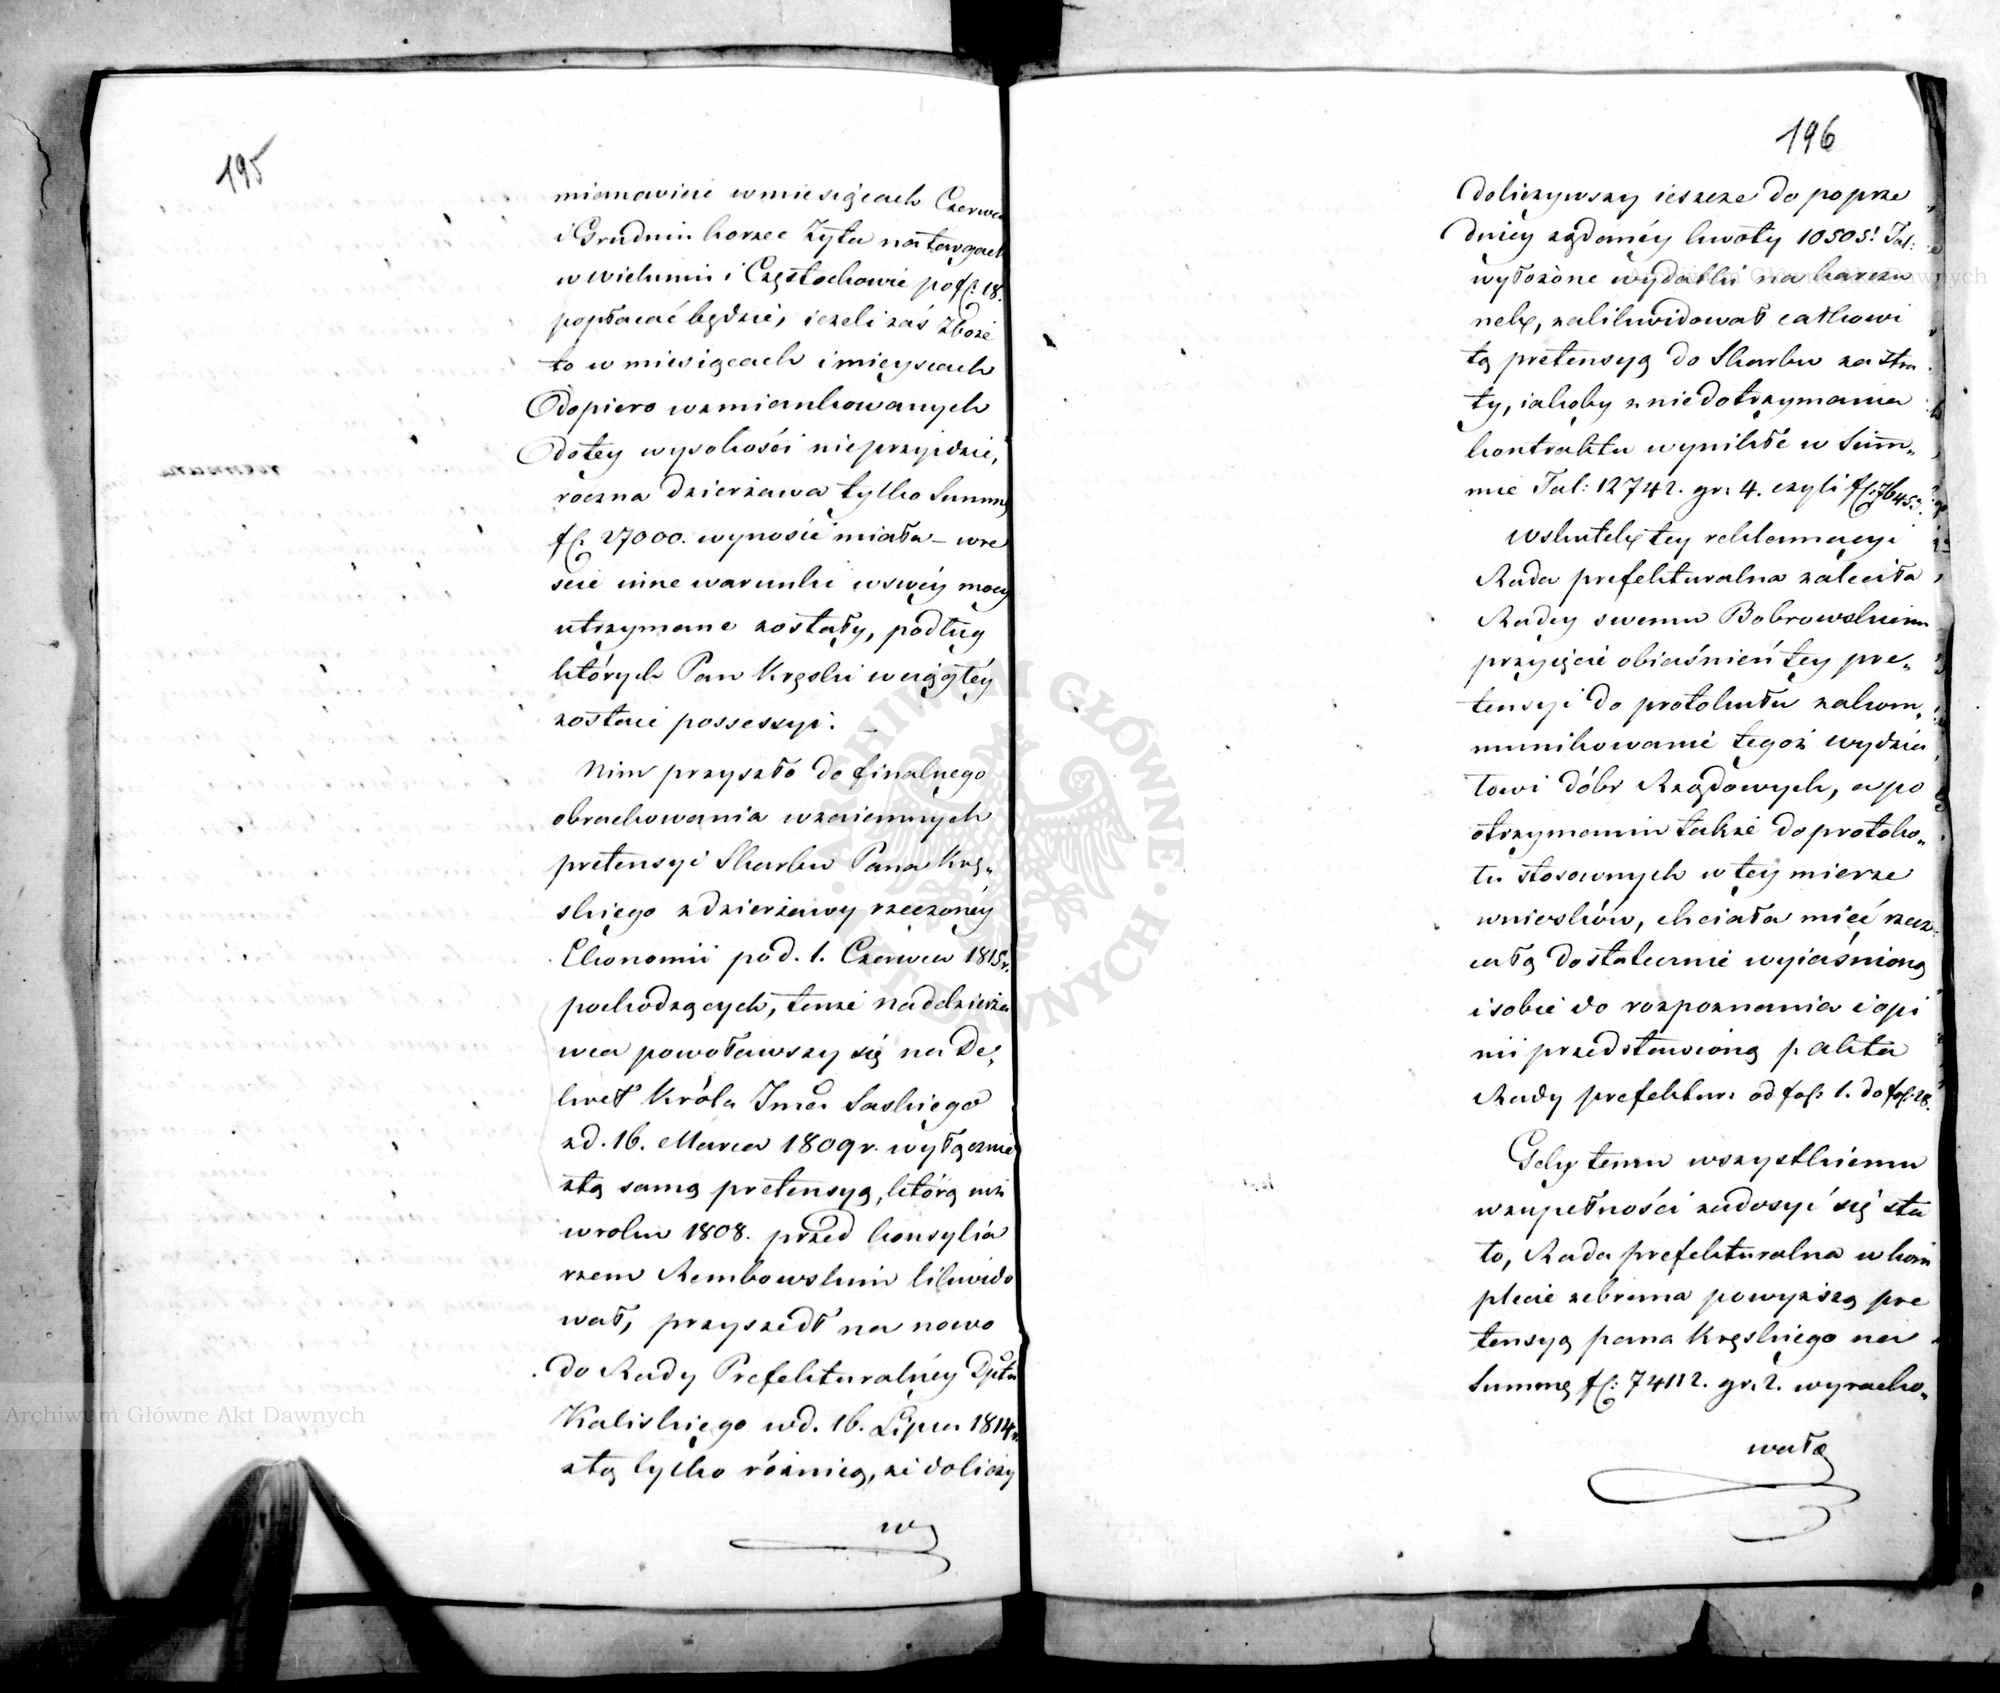 195
mianowicie w miesiącach Czerwcu
i Grudniu korzec Żyta na targach
w Wieluniu i Częstochowie po fl: 18.
popłacać będzie, ieżeli zaś Zboże
to w miesiącach i mieyscach
dopiero wzmiankowanych
do tey wysokości nie przyidzie,
roczna dzierżawa tylko Summę
fl: 27000. wynosić miała – wre
scie inne warunki w swéy mocy
utrzymane zostały, podług
których Pan Kręski w ciągłéy
zostaie possessyi.
Nim przyszło do finalnego
obrachowania wzaiemnych
pretensyi Skarbu Pana Krę„
skiego z dzierżawy rzeczonéy
Ekonomii pod. 1. Czerwca 1815r.
pochodzących, tenże naddzierża
wca powoławszy się na De„
kret Króla Jmci Saskiego
z d. 16. Marca 1809r. wyłącznie
z tą samą pretensyą, którą iuż
w roku 1808. przed konsylia
rzem Rembowskim likwido
wał, przyszedł na nowo
do Rady Prefekturalnéy Dptu
Kaliskiego w d. 16. Lipca 1814r.
z tą tylko różnicą, że doliczy
w
196
doliczywszy ieszcze do poprze
dniéy żądanéy kwoty 10505! Tal:
wyłożone wydatki na karczu
nek, zalikwidował całkowi
tą pretensyą do Skarbu za stra
ty, iakoby z niedotrzymania
kontraktu wynikłe w Sum„
mie Tal: 12742. gr: 4. czyli fl: 76453.
Wskutek tey reklamacyi
Rada prefekturalna zaleciła
Radcy swemu Bobrowskiemu
przyięcie obiaśnień tey pre„
tensyi do protokułu zakom„
munikowanie tegoż wydzia
łowi dóbr Rządowych, a po
otrzymaniu także do protoko„
łu stosownych w tey mierze
wniosków, chciała mieć rzecz
całą dostatecznie wyiaśnioną
i sobie do rozpoznania i opi
nii przedstawioną p. akta
Rady prefektur: od fol: 1. do fol: 28.
Gdy temu wszystkiemu
w zupełności zadosyć się sta
ło, Rada prefekturalna w kom
plecie zebrana powyższą pre
tensyą pana Kręskiego na
Summę fl: 74112. gr. 2. wyracho„
wałą
Archiwum Główne Akt Dawnych
Archiwum Główne Akt Dawnych
ARCHIWUM GŁÓWNE AKT DAWNYCH